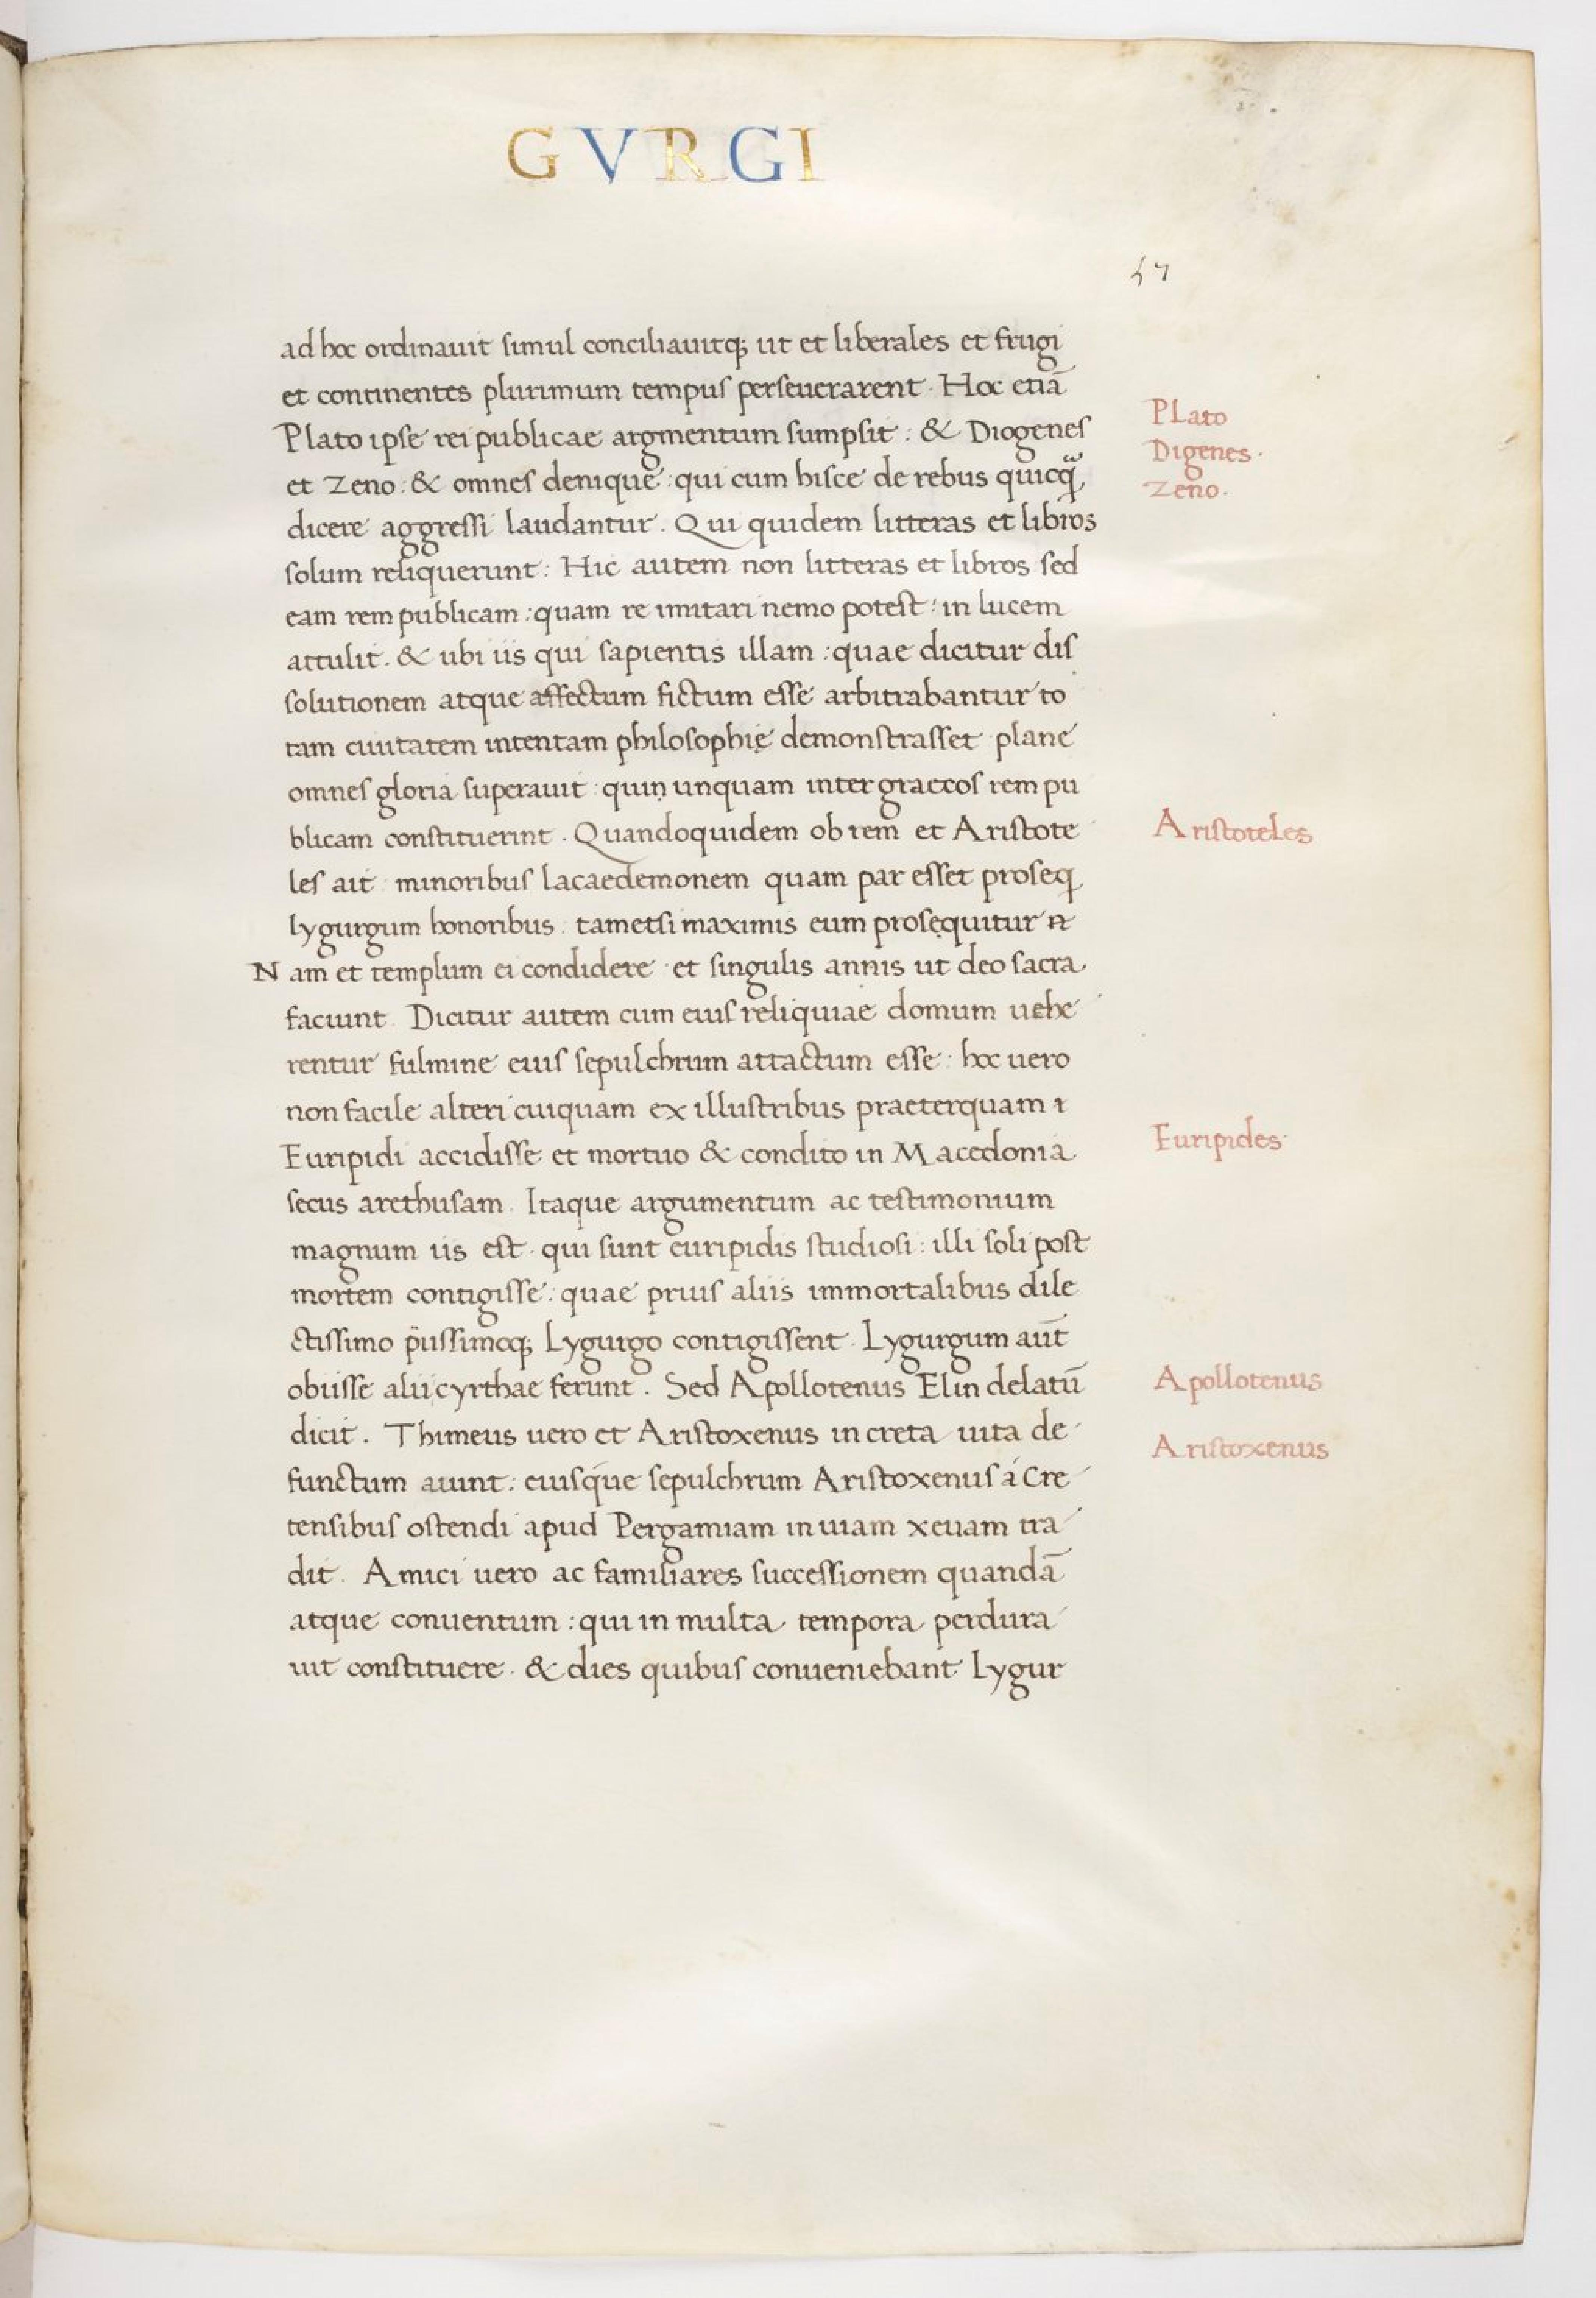 GVRGI
47
ad hoc ordinauit simul conciliauitq; ut et liberales et frugi
et continentes plurimum tempus perseuerarent. Hoc etiā
Plato ipse rei publicae argmentum sumpsit: & Diogenes
et Zeno: & omnes denique: qui cum hisce de rebus quicq̃
dicere aggressi laudantur. Qui quidem litteras et libros
solum reliquerunt: Hic autem non litteras et libros sed
eam rem publicam: quam re imitari nemo potest: in lucem
attulit. & ubi iis qui sapientis illam: quae dicitur dis
solutionem atque affectum fictum esse arbitrabantur to
tam ciuitatem intentam philosophię demonstrasset plane
omnes gloria superauit: quin unquam inter graecos rem pu
blicam constituerint. Quandoquidem ob rem et Aristote
les ait minoribus lacaedemonem quam par esset proseq
lygurgum honoribus. tametsi maximis eum prosequitur
Nam et templum ei condidere et singulis annis ut deo sacra
faciunt. Dicitur autem cum eius reliquiae domum uehe
rentur fulmine eius sepulchrum attactum esse: hoc uero
non facile alteri cuiquam ex illustribus praeterquam
Euripidi accidisse et mortuo & condito in Macedonia
secus arethusam. Itaque argumentum ac testimonium
magnum iis est. qui sunt euripidis studiosi: illi soli post
mortem contigisse: quae prius aliis immortalibus dile
ctissimo piissimoq; Lygurgo contigissent. Lygurgum aut̄
obiisse alii cyrthae ferunt. Sed Apollotenus Elin delatū
dicit. Thimeus uero et Aristoxenus in creta uita de
functum aiunt: eiusque sepulchrum Aristoxenus á Cre
tensibus ostendi apud Pergamiam in uiam xeuam tra
dit. Amici uero ac familiares successionem quandā
atque conuentum: qui in multa tempora perdura
uit constituere. & dies quibus conueniebant Lygur
PLato
Digenes.
Zeno.
Aristoteles
Euripides.
Apollotenus
Aristoxenus